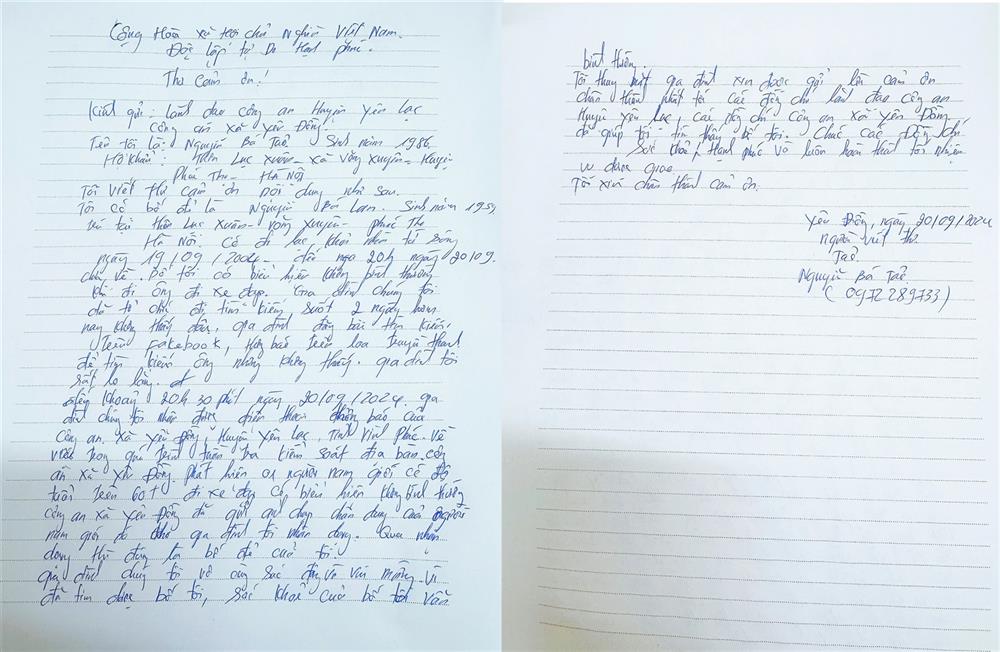 Cộng Hoà xã hội chủ Nghĩa Việt Nam.
Độc lập tự Do Hạnh phúc.
Thư Cảm ơn!
Kính gửi: Lãnh đạo công an Huyện Yên Lạc
Công an xã Yên Đồng
Tên tôi là: Nguyễn Bá Taể Sinh năm 1986
Hộ Khẩu: Thôn Lục Xuân - xã Võng Xuyên - Huyện
Phúc Thọ - Hà Nội
Tôi viết thư cảm ơn nội dung như sau.
Tôi có bố đẻ là Nguyễn Bá Lan. Sinh năm 195
trú tại thôn Lục Xuân - Võng Xuyên - Phúc Thọ
Hà Nội. Có đi lạc khỏi nhà từ sáng
ngày 19/09/2024 - đến nga 20h ngày 20/09.
chưa về. Bố tôi có biểu hiện không bình thường
khi đi ông đi xe đạp. Gia đình chúng tôi
đã tổ chức đi tìm kiếm, suốt 2 ngày hôm
nay không thấy đâu, gia đình đăng bài tìm kiếm,
trên facebook, thông báo trên loa truyền thanh
để tìm kiếm ông nhưng không thấy. gia đình tôi
rất lo lắng.
đến khoảng 20h 30 phút ngày 20/09/2024. gia
đình chúng tôi nhận được điện thoại thông báo của
công an xã Yên Đồng, Huyện Yên Lạc, Tỉnh Vĩnh Phúc. về
việc trong quá trình tuần tra kiểm soát địa bàn công
an xã Yên Đồng phát hiện 01 người nam giới có độ
tuổi trên 60t đi xe đạp có biểu hiện không bình thường
công an xã Yên Đồng đã gửi chụp chân dung của người
nam giới đó cho gia đình tôi nhận dạng. Qua nhận
dạng thì đúng là bố đẻ của tôi.
gia đình chúng tôi vô cùng xúc động và vui mừng. vì
đã tìm được bố tôi, sức khoẻ của bố tôi vẫn
bình thường.
Tôi thay mặt gia đình xin được gửi lời cảm ơn
chân thành nhất tới các đồng chí lãnh đạo công an
Huyện Yên Lạc, các đồng chí công an xã Yên Đồng
đã giúp tôi tìm thấy bố tôi. Chúc các Đồng chí
Sức khoẻ, Hạnh phúc và luôn hoàn thành tốt nhiệm
vụ được giao
Tôi xin chân thành cảm ơn.
Yên Đồng, ngày 20/09/2024
người viết thư.
Taể
Nguyễn Bá Taể
(0972289733)